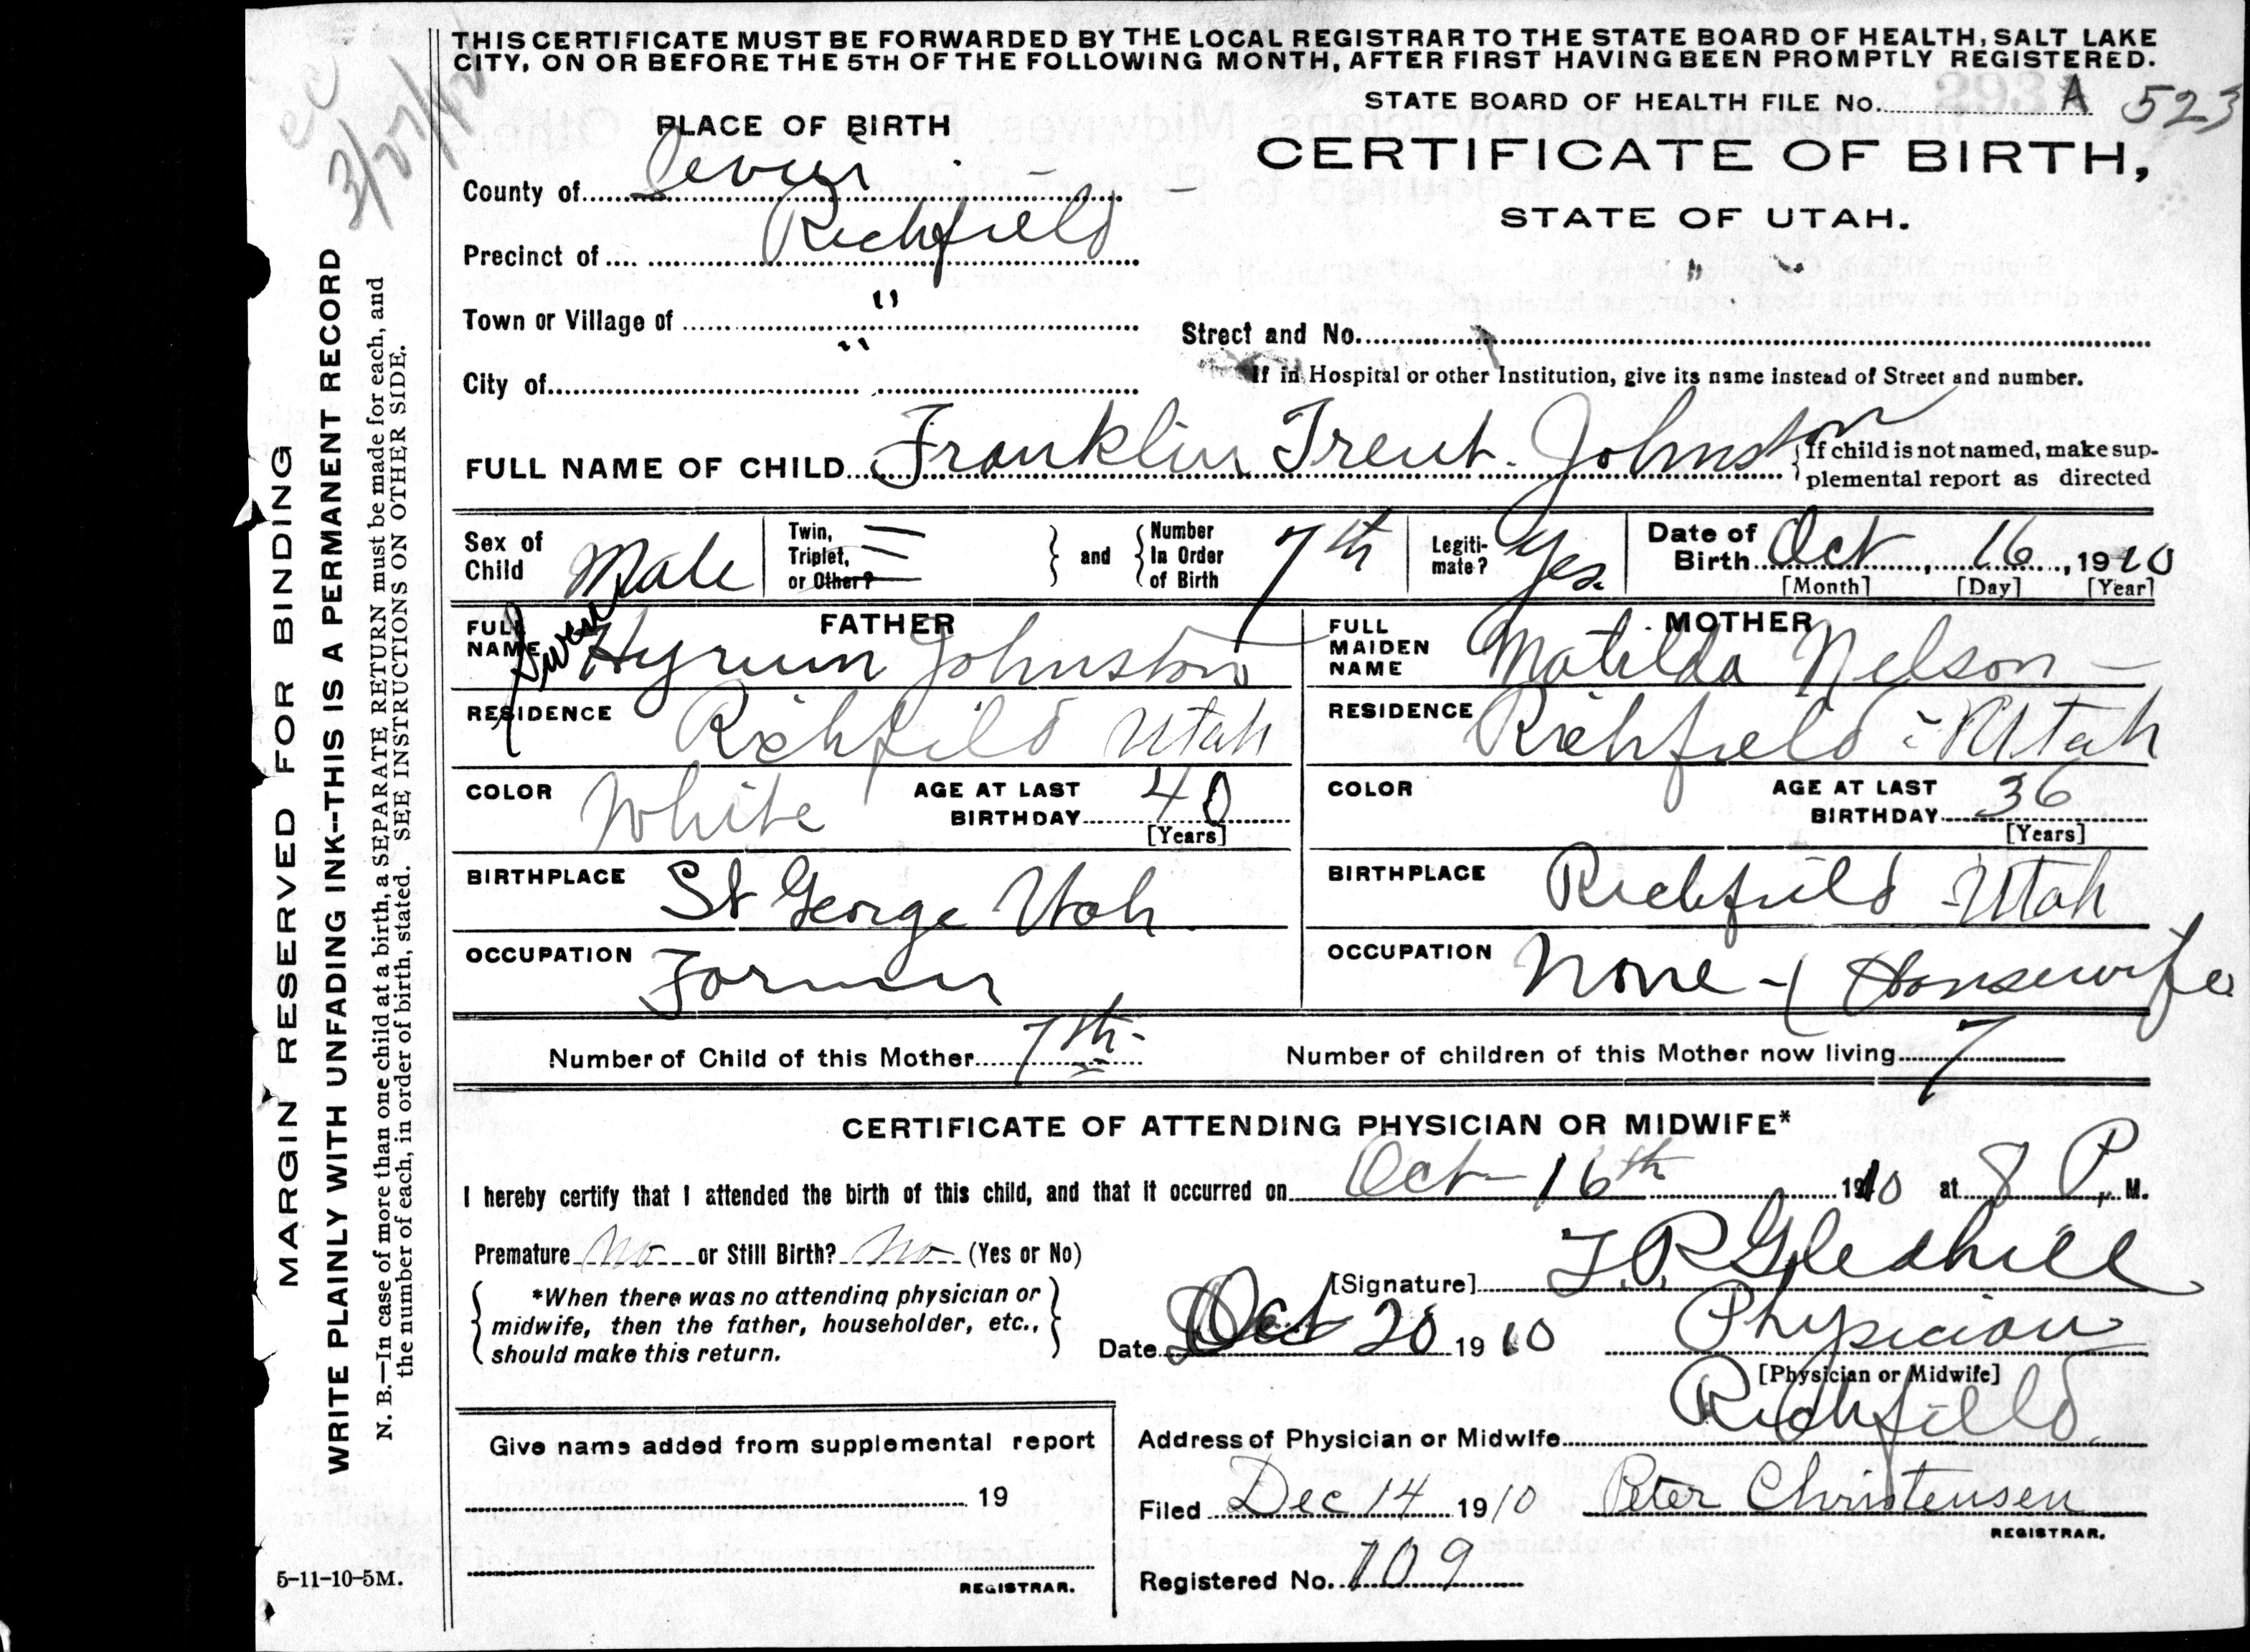 THIS CERTIFICATE MUST BE FORWARDED BY THE LOCAL REGISTRAR TO THE STATE BOARD OF HEALTH, SALT LAKE
CITY, ON OR BEFORE THE 5TH OF THE FOLLOWING MONTH, AFTER FIRST HAVING BEEN PROMPTLY REGISTERED.
3/27/42
STATE BOARD OF HEALTH FILE No. A 523
PLACE OF BIRTH
CERTIFICATE OF BIRTH,
STATE OF UTAH.
County of Sevier
Precinct of Richfield
Town or Village of "
Street and No.
City of "
If in Hospital or other Institution, give its name instead of Street and number.
FULL NAME OF CHILD Franklin Trent Johnston
If child is not named, make sup-
plemental report as directed
Sex of Child Male
Twin, Triplet, or Other? and Number In Order of Birth 7th
Legiti-mate? Yes.
Date of Birth Oct 16, 1910
[Month] [Day] [Year]
FATHER
FULL NAME Hyrum Johnston
MOTHER
FULL MAIDEN NAME Matilda Nelson
RESIDENCE Richfield Utah
RESIDENCE Richfield - Utah
COLOR White
AGE AT LAST BIRTHDAY 40
[Years]
COLOR
AGE AT LAST BIRTHDAY 36
[Years]
BIRTHPLACE St George Utah
BIRTHPLACE Richfield - Utah
OCCUPATION Farmer
OCCUPATION None - ( Housewife
Number of Child of this Mother 7th
Number of children of this Mother now living 7
CERTIFICATE OF ATTENDING PHYSICIAN OR MIDWIFE*
I hereby certify that I attended the birth of this child, and that it occurred on Oct 16th 1910 at 8 P. M.
Premature No or Still Birth? No (Yes or No)
[Signature] T. R. Gledhill
*When there was no attending physician or
midwife, then the father, householder, etc.,
should make this return.
Date Oct 20 1910
Physician
[Physician or Midwife]
Address of Physician or Midwife Richfield
Give name added from supplemental report
19
REGISTRAR.
Filed Dec 14 1910 Peter Christensen
REGISTRAR.
Registered No. 109
5-11-10-5M.
MARGIN RESERVED FOR BINDING
WRITE PLAINLY WITH UNFADING INK--THIS IS A PERMANENT RECORD
N. B.—In case of more than one child at a birth, a SEPARATE RETURN must be made for each, and
the number of each, in order of birth, stated. SEE INSTRUCTIONS ON OTHER SIDE.